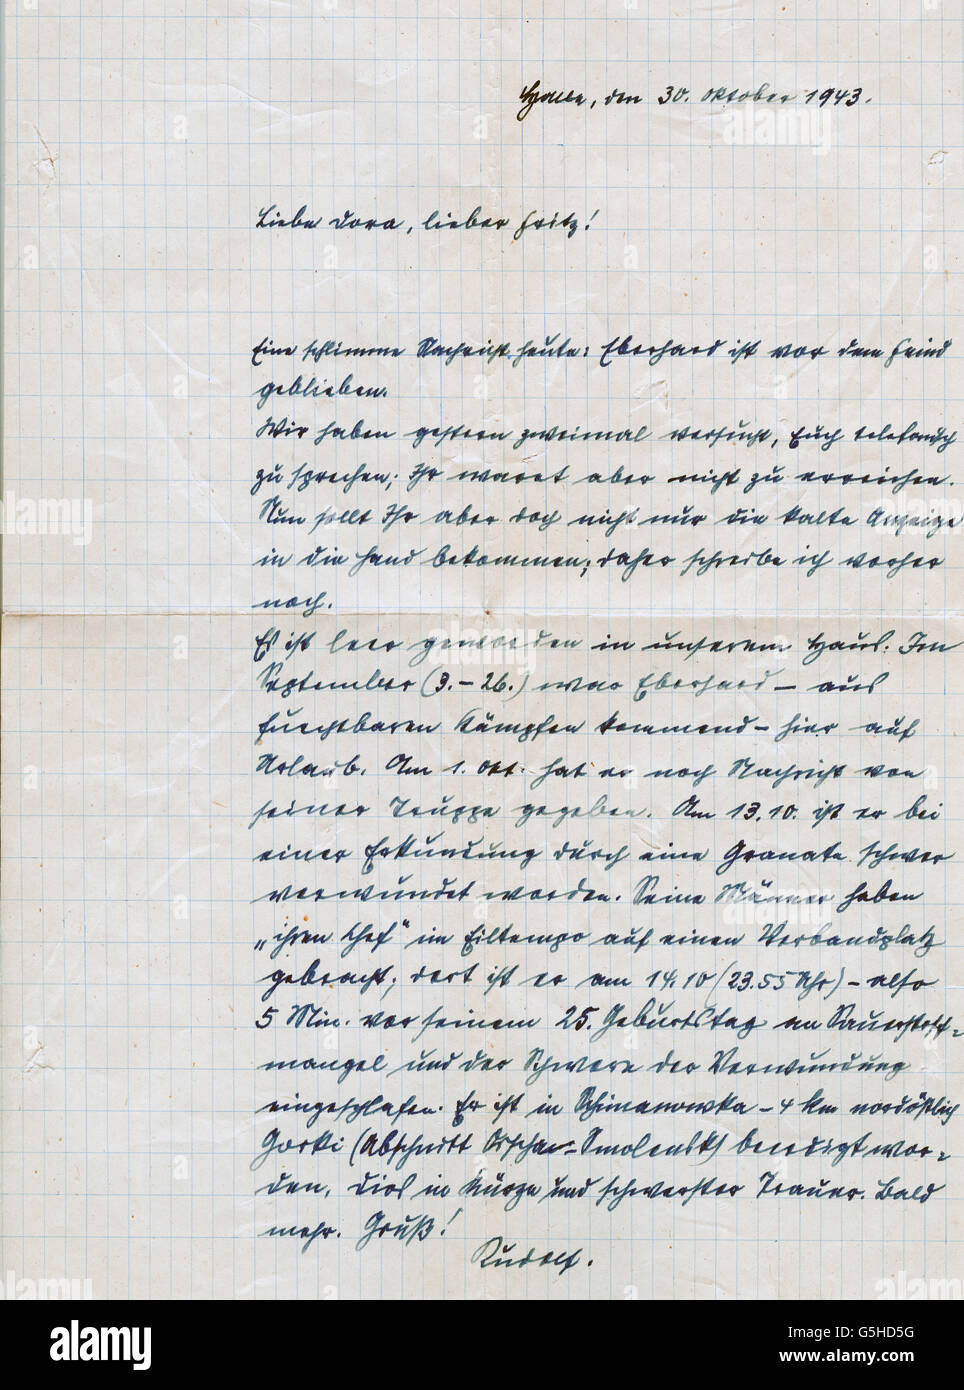 Halle, den 30. Oktober 1943.
Liebe Dora, lieber Fritz!
Eine schlimme Nachricht heute: Eberhard ist vor dem Feind
geblieben.
Wir haben gestern zweimal versucht, Euch telefonisch
zu sprechen; Ihr waret aber nicht zu erreichen.
Nun sollt Ihr aber doch nicht nur die kalte Anzeige
in die Hand bekommen; daher schreibe ich vorher
noch.
Es ist leer geworden in unserem Haus. Im
September (3.-26.) war Eberhard – aus
furchtbaren Kämpfen kommend – hier auf
Urlaub. Am 1. Okt. hat er noch Nachricht von
seiner Truppe gegeben. Am 13.10. ist er bei
einer Erkundung durch eine Granate schwer
verwundet worden. Seine Männer haben
„ihren Chef“ im Eiltempo auf einen Verbandplatz
gebracht; dort ist er am 14.10 (23.55 Uhr) – also
5 Min. vor seinem 25. Geburtstag an Sauerstoff-
mangel und der Schwere der Verwundung
eingeschlafen. Er ist in Schimanowka – 4 km nordöstlich
Gorki (Abschnitt Orscha-Smolensk) beerdigt wor-
den. Dies in Kürze und schwerster Trauer. Bald
mehr. Gruß!
Rudolf.
alamy
Image ID: G5HD5G
www.alamy.com